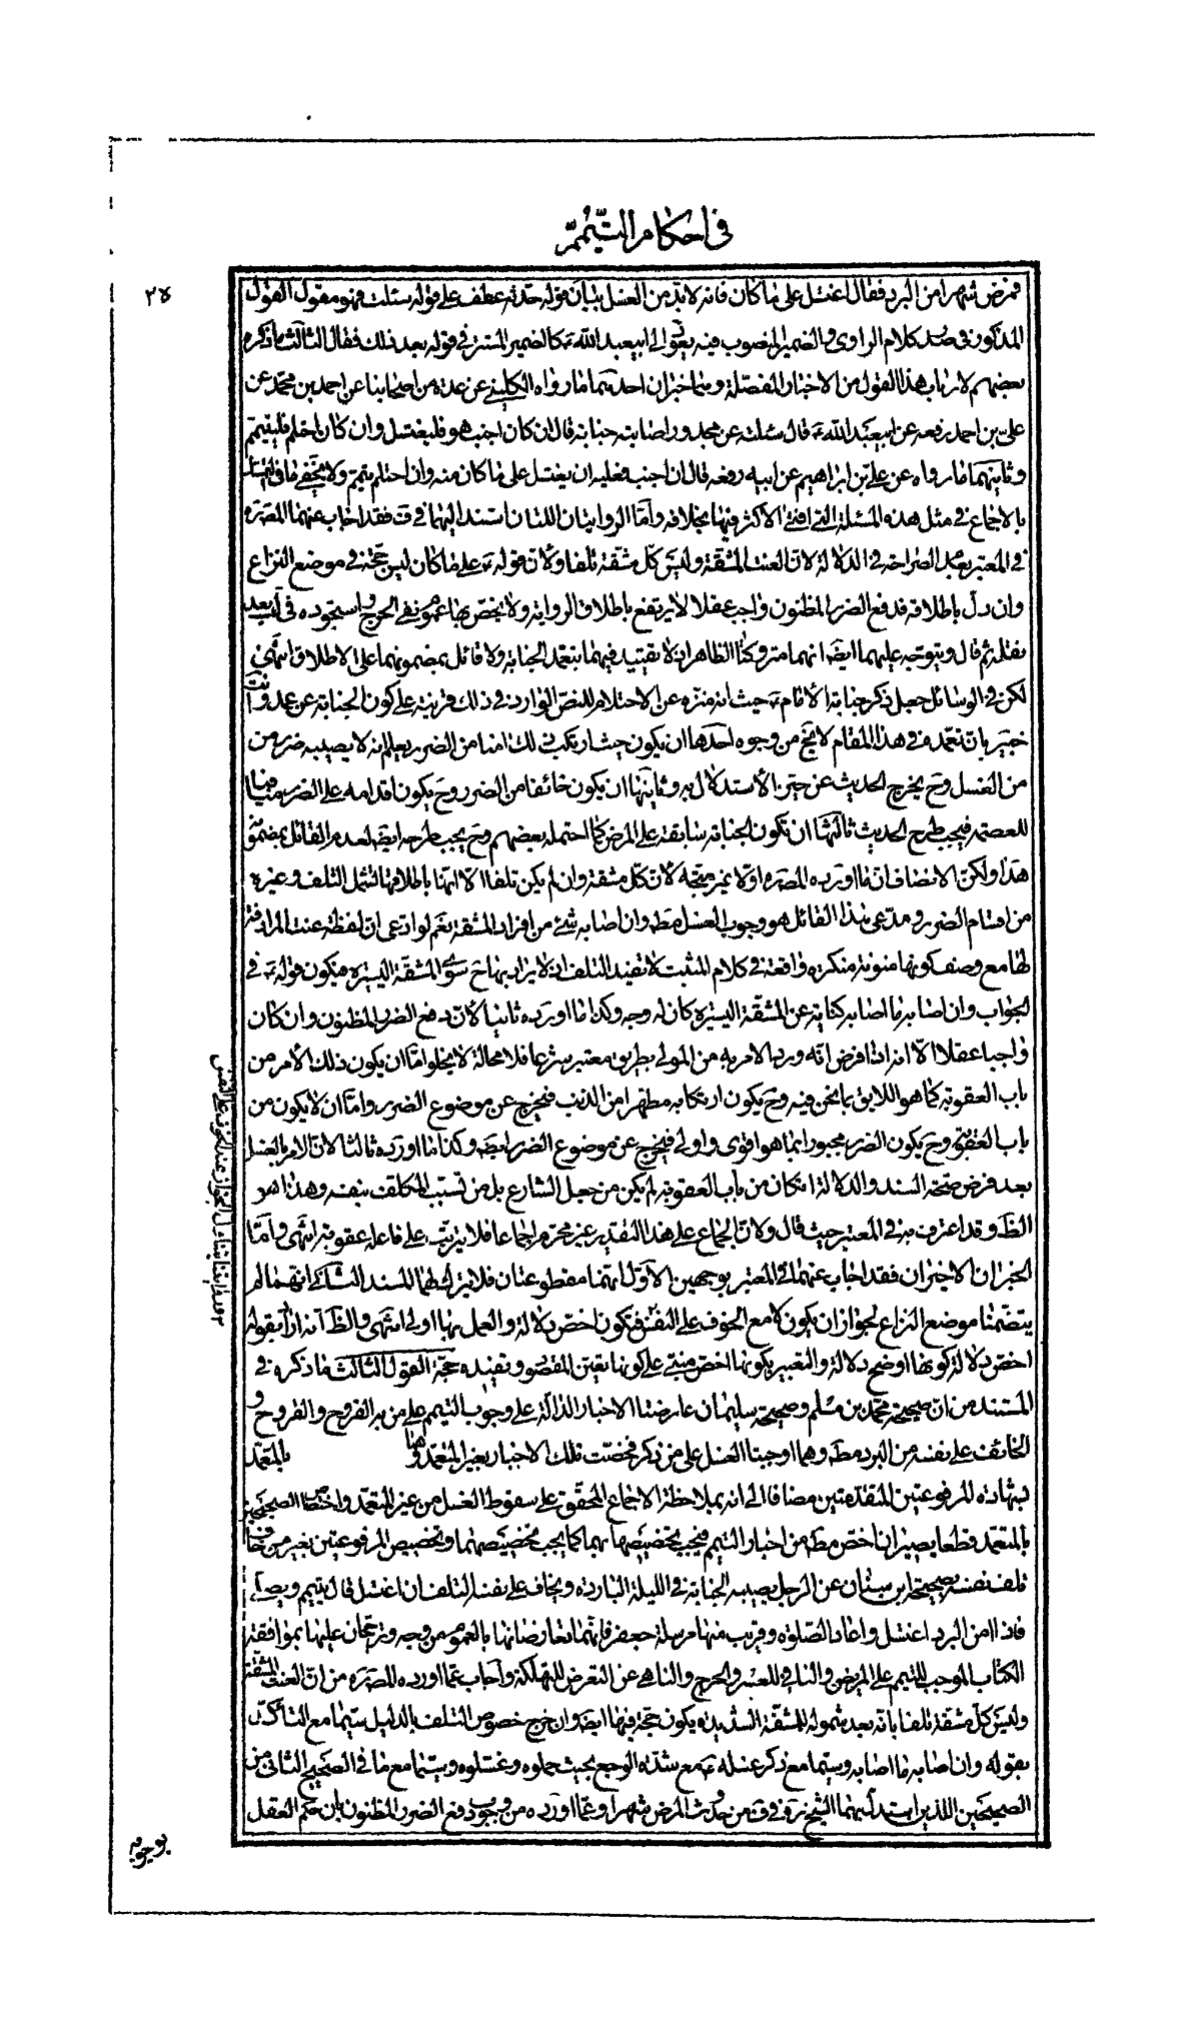 في احكام التيمم
٢٧
فمرض شهرا من البرد فقال اغتسل على ما كان فانه لا بد من الغسل بيان قوله حدثه عطف على قوله سئلت فهو مقول القول
المذكور في صدر كلام الراوي والضمير المنصوب فيه يعود الى ابيعبد الله ع كالضمير المستتر في قوله بعد ذلك فقال الثالث ما ذكره
بعضهم لارباب هذا القول من الاخبار المفصلة وهما خبران احدهما ما رواه الكليني عن عدة من اصحابنا عن احمد بن محمد عن
علي بن احمد رفعه عن ابيعبد الله ع قال سئلته عن مجدور اصابته جنابة قال ان كان اجنب هو فليغتسل وان كان احتلم فليتيمم
وثانيهما ما رواه عن علي بن ابراهيم عن ابيه رفعه قال ان اجنب فعليه ان يغتسل على ما كان منه وان احتلم تيمم ولا يخفى ما في التمسك
بالاجماع في مثل هذه المسئلة التي افتى الاكثر فيها بخلافه واما الروايتان اللتان استند اليهما في ف فقد اجاب عنهما المص ره
في المعتبر بعدم الصراحة في الدلالة لان العنت المشقة وليس كل مشقة تلفا ولان قوله ع على ما كان ليس حجة في موضع النزاع
وان دل باطلاقه فدفع الضرر المظنون واجب عقلا لا يرتفع باطلاق الرواية ولا يخص بها عموم نفي الحرج واستجوده في ك بعد
نقله ثم قال ويتوجه عليهما ايضا انهما متروكتا الظاهر اذ لا تقييد فيهما بتعمد الجنابة ولا قائل بمضمونهما على الاطلاق انتهى
لكن في الوسائل جعل ذكر جنابة الامام ع حيث انه منزه عن الاحتلام للنص الوارد في ذلك قرينة على كون الجنابة عن عمد وانت
خبير بان تعمده في هذا المقام لا يخ من وجوه احدها ان يكون حيث ارتكب ذلك امنا من الضرر يعلم انه لا يصيبه ضرر من
من الغسل وح يخرج الحديث عن حيز الاستدلال به وثانيها ان يكون خائفا من الضرر وح يكون اقدامه على الضرر منافيا
للعصمة فيجب طرح الحديث ثالثها ان تكون الجنابة سابقة على المرض كما احتمله بعضهم وح يجب طرحه ايضا لعدم القائل بمضمونه
هذا ولكن الانصاف ان ما اورده المص ره اولا غير متجه لان كل مشقة وان لم يكن تلفا الا انها باطلاقها تشمل التلف وغيره
من اقسام الضرر ومدعى هذا القائل هو وجوب الغسل مط وان اصابه شئ من افراد المشقة نعم لو ادعى ان لفظة عنت المرادفة
لها مع وصف كونها منونة منكرة واقعة في كلام المثبت لا تفيد التلف اذ لا يراد بها ح سوى المشقة اليسيرة فيكون قوله ع في
الجواب وان اصابه ما اصابه كناية عن المشقة اليسيرة كان له وجه وكذا ما اورده ثانيا لان دفع الضرر المظنون وان كان
واجبا عقلا الا انه اذا فرض انه ورد الامر به من المولى بطريق معتبر شرعا فلا محالة لا يخلو اما ان يكون ذلك الامر من
باب العقوبة كما هو اللايق بما نحن فيه وح يكون ارتكابه مطهرا من الذنب فيخرج عن موضوع الضرر واما ان لا يكون من
باب العقوبة وح يكون الضرر مجبورا بما هو اقوى واولى فيخرج عن موضوع الضرر ايضا وكذا ما اورده ثالثا لان الامر بالغسل
بعد فرض صحة السند والدلالة ان كان من باب العقوبة لم يكن من جعل الشارع بل من تسبب المكلف بنفسه وهذا هو
الظ وقد اعترف به في المعتبر حيث قال ولان الجماع على هذا التقدير غير محرم اجماعا فلا يترتب على فاعله عقوبة انتهى واما
الخبران الاخيران فقد اجاب عنهما في المعتبر بوجهين الاول انهما مقطوعتان فلا يترك لهما المسند الثاني انهما لم
يتضمنا موضع النزاع لجواز ان يكون لا مع الخوف على النفس فتكون اخص دلالة والعمل بها اولى انتهى والظ انه اراد بقوله
اخص دلالة كونها اوضح دلالة والتعبير بكونها اخص مبني على كونها بعين المقصود وتفيده حجة القول الثالث ما ذكره في
المستند من ان صحيحة محمد بن مسلم وصحيحة سليمان عارضتا الاخبار الدالة على وجوب التيمم على من به القروح والجروح و
الخائف على نفسه من البرد مط وهما اوجبتا الغسل على من ذكر فخصت تلك الاخبار بغير المتعمد وهما بالمتعمد
بشهادة المرفوعتين المتقدمتين مضافا الى انه بملاحظة الاجماع المحقق على سقوط الغسل من غير المتعمد واختصاص الصحيحتين
بالمتعمد قطعا يصيران اخص مط من اخبار التيمم فيجب تخصيصها بهما كما يجب تخصيصهما وتخصيص المرفوعتين بغير من خاف
تلف نفسه بصحيحة ابن سنان عن الرجل يصيبه الجنابة في الليلة الباردة ويخاف على نفسه التلف ان اغتسل قال يتيمم ويصلي
فاذا امن البرد اغتسل واعاد الصلوة وقريب منها مرسلة جعفر فانهما تعارضانها بالعموم من وجه وترجحان عليها بموافقة
الكتاب الموجب للتيمم على المريض والنافي للعسر والحرج والناهي عن التعرض للتهلكة واجاب عما اورده المص ره من ان العنت المشقة
وليس كل مشقة تلفا بانه بعد شموله للمشقة الشديدة يكون حجة فيها ايضا وان خرج خصوص التلف بالدليل سيما مع التأكد
بقوله وان اصابه ما اصابه وسيما مع ذكر غسله ع مع شدة الوجع بحيث حملوه وغسلوه وسيما مع ما في الصحيح الثاني من
الصحيحين اللذين استدل بهما الشيخ ره في ف من حدوث المرض شهرا وعما اورده من وجوب دفع الضرر المظنون بان حكم العقل
بوجوبه